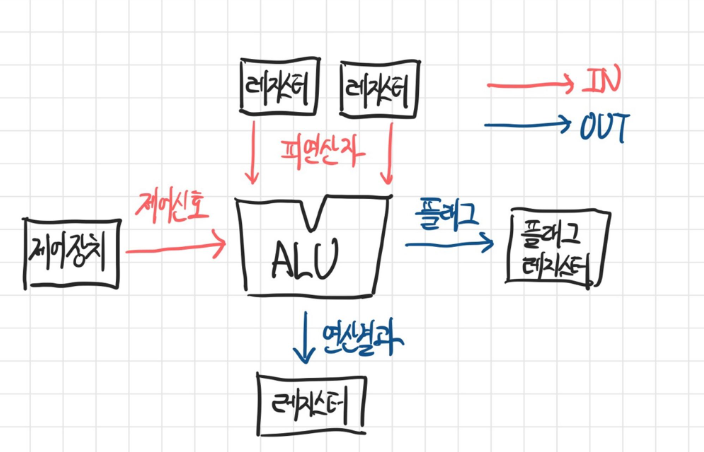 레지스터
레지스터
IN
OUT
피연산자
제어신호
플래그
제어장치
ALU
플래그
레지스터
연산결과
레지스터